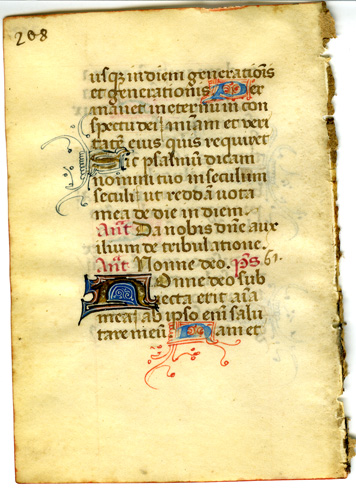 208
usq; in diem generatiōis
et generationis Per
manet in eternū in con
spectu dei miām et veri
tatē eius quis requiret
Sic psalmū dicam
nomini tuo in seculum
seculi ut reddā vota
mea de die in diem.
Ant̄ Da nobis dn̄e aux
ilium de tribulatione.
Ant̄ Nonne deo. p̄s 61.
Nonne deo sub
iecta erit aīa
mea ab ipso eni salu
tare meū Nam et